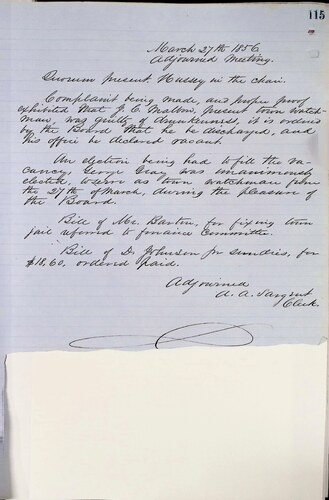 115
March 27th 1856
Adjourned Meeting.
Quorum present, Hussey in the chair.
Complaint being made, and proper proof
exhibited that J. C. Malbon, present town watch-
man, was guilty of drunkenness, it is ordered
by the Board that he be discharged, and
his office be declared vacant.
An election being had to fill the va-
cancy, George Gray was unanimously
elected, to serve as town watchman from
the 27th of March, during the pleasure of
the Board.
Bill of Mr. Barton, for fixing town
jail referred to finance Committee.
Bill of D. Johnson for sundries, for
$18,60, ordered paid.
Adjourned
A. A. Sargent
Clerk.